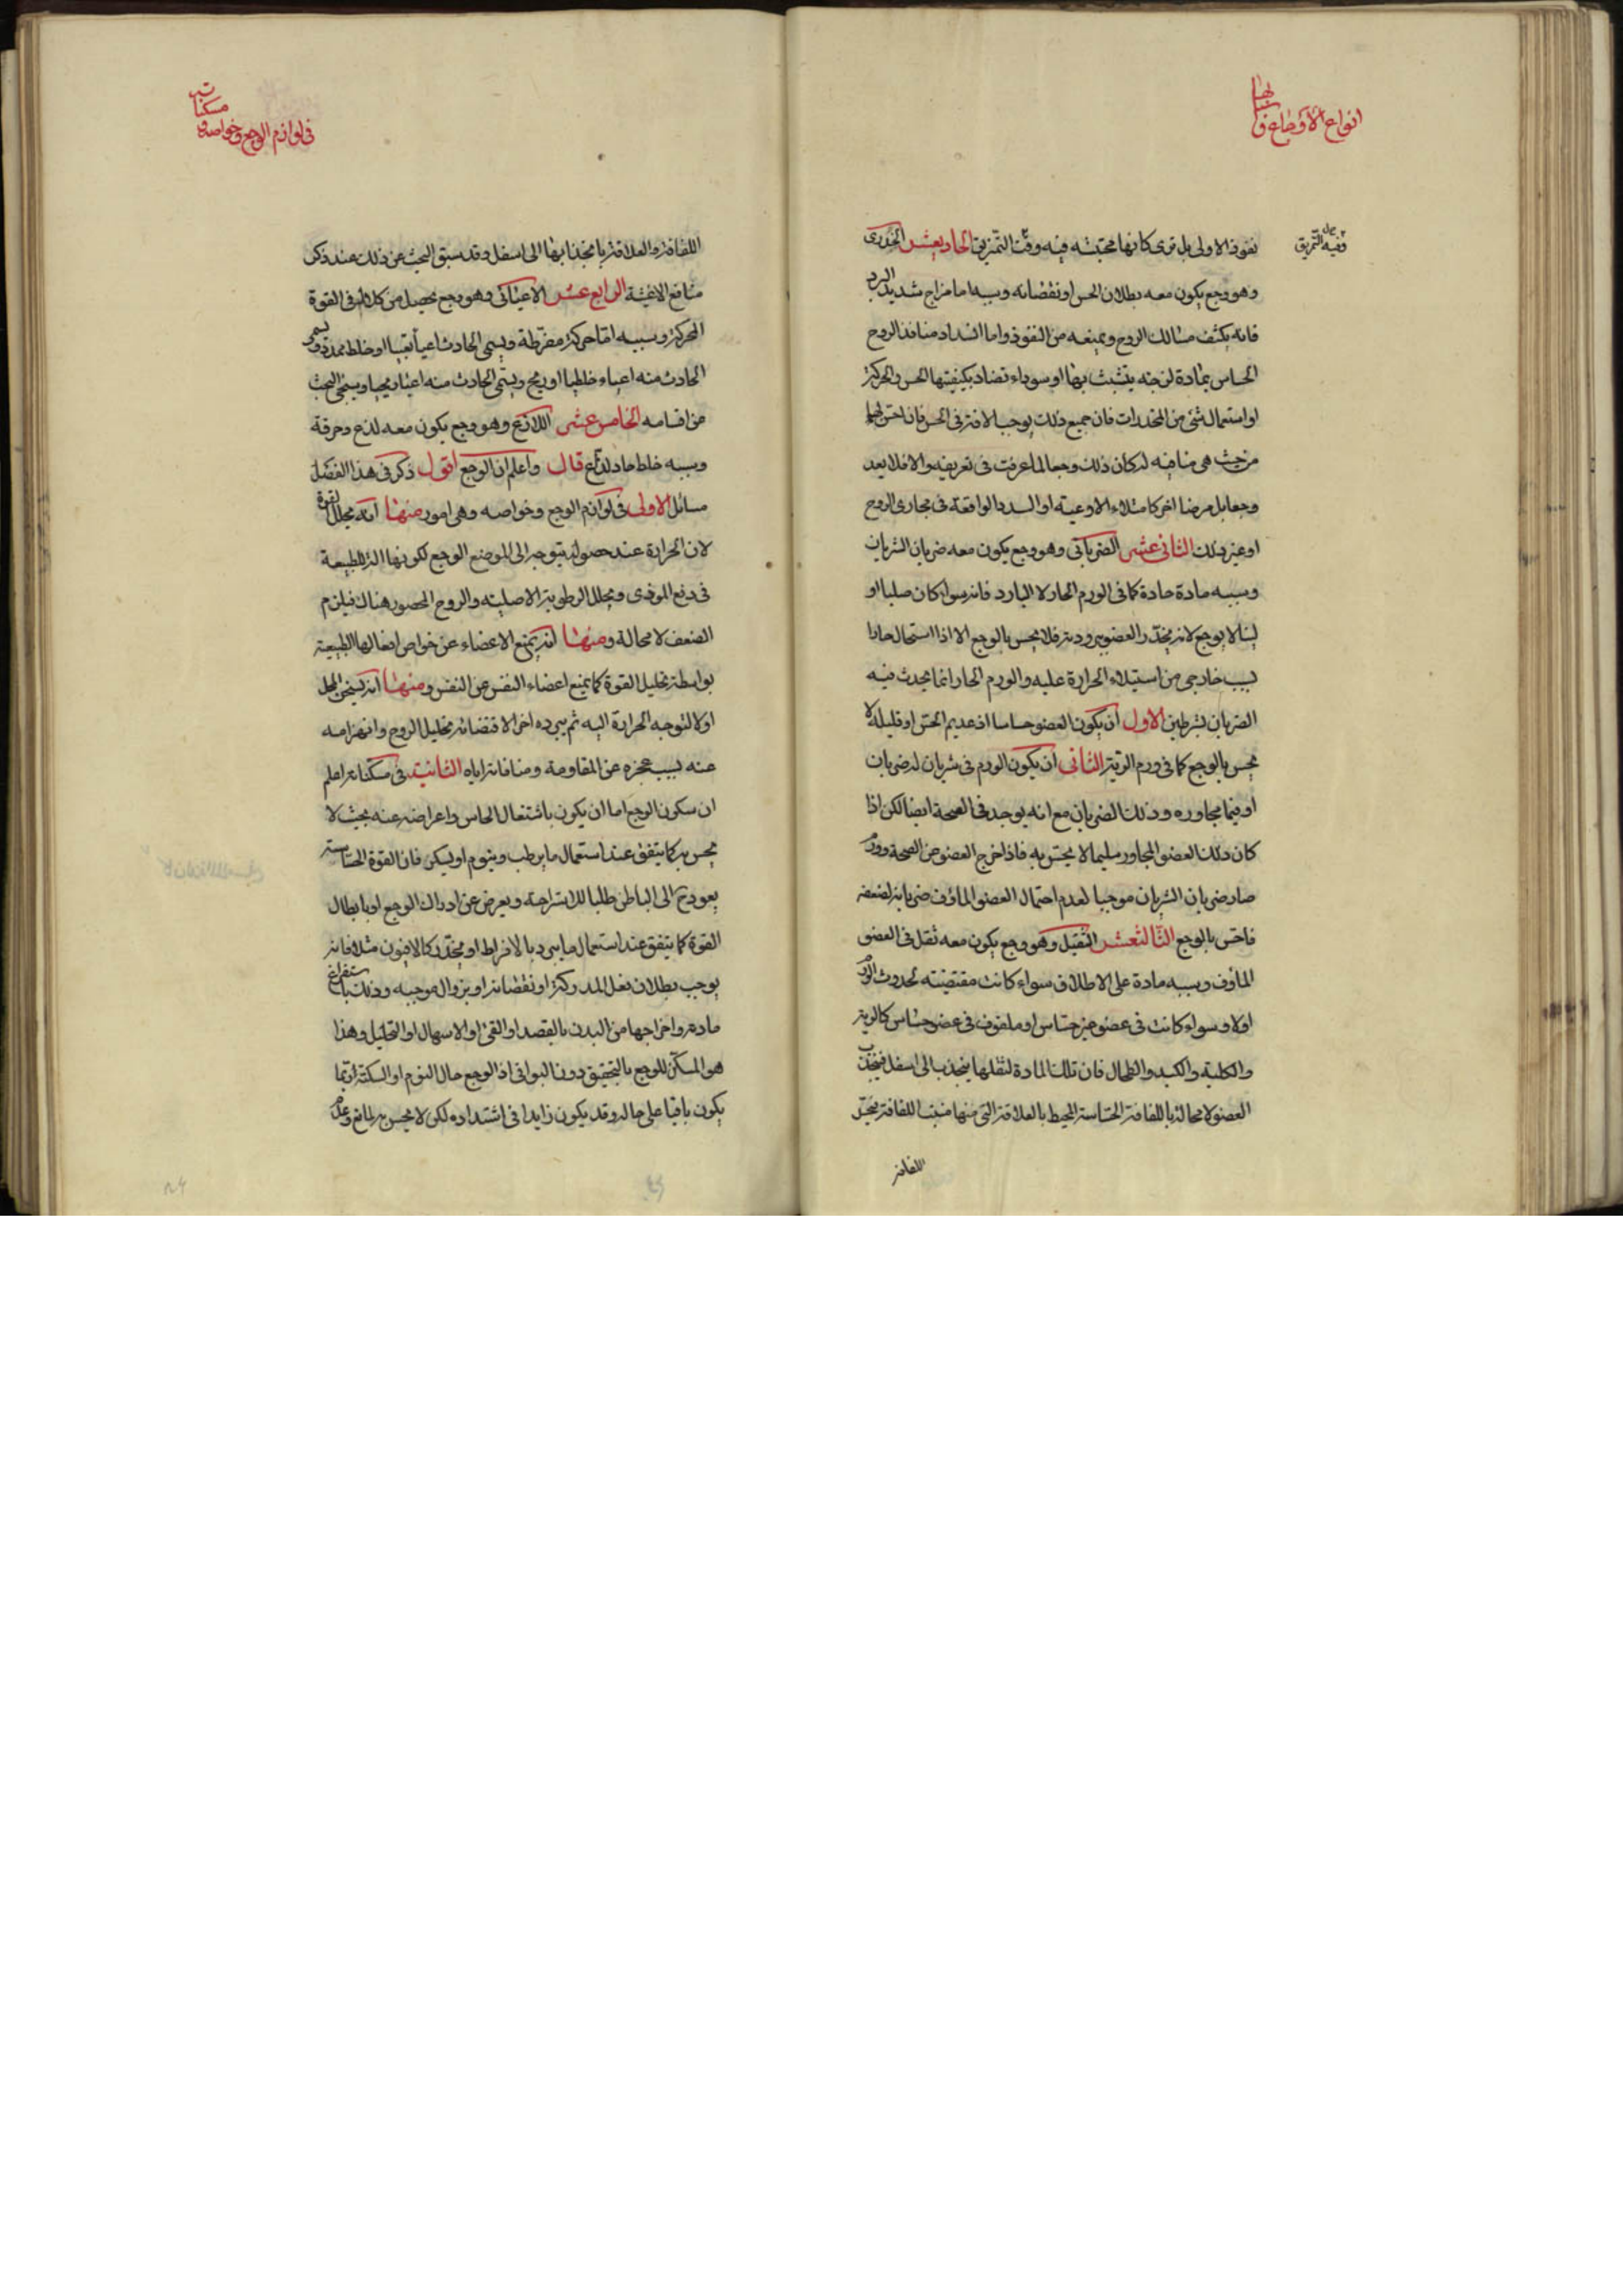 انواع الأوجاع و
سببها
وفيه التمزيق
نفوذ الاولى بل ترى كانها محتبسة فيه وقت التمزيق الحاد يعشر الخدرى
وهو وجع يكون معه بطلان الحس او نقصانه وسببه اما مزاج شديد البرد
فانه يكثف مسالك الروح ويمنعه من النفوذ واما انسداد منافذ الروح
الحساس بمادة لزجة يتشبث بها او سوداء تضاد بكيفيتها الحس والحركة
او استعمال شئ من المخدرات فان جميع ذلك يوجب الافة فى الحس فان احس بها
من حيث هى منافيه له كان ذلك وجعا لما عرفت فى تعريفه والا فلا يعد
وجعا بل مرضا اخر كامتلاء الاوعية او السدد الواقعة فى مجارى الروح
او غير ذلك الثانى عشر الضربانى وهو وجع يكون معه ضربان الشريان
وسببه مادة حادة كما فى الورم الحار لا البارد فانه سواء كان صلبا او
لينا لا يوجع لانه يخدر العضو ببرودته فلا يحس بالوجع الا اذا استحال حارا
بسبب خارجى من استيلاء الحرارة عليه والورم الحار انما يحدث فيه
الضربان بشرطين الاول ان يكون العضو حساسا اذ عديم الحس او قليله لا
يحس بالوجع كما فى ورم الرية الثانى ان يكون الورم فى شريان له ضربان
او فيما يجاوره وذلك الضربان مع انه يوجد فى الصحة ايضا لكن اذا
كان ذلك العضو المجاور سليما لا يحس به فاذا خرج العضو من الصحة وورم
صار ضربان الشريان موجبا لعدم احتمال العضو الماؤف ضربانه لضعفه
فاحس بالوجع الثالث عشر الثقيل وهو وجع يكون معه ثقل فى العضو
الماؤف وسببه مادة على الاطلاق سواء كانت مقتضية لحدوث الورم
اولا وسواء كانت فى عضو غير حساس او ملفوف فى عضو حساس كالرية
والكلية والكبد والطحال فان تلك المادة لثقلها ينجذب الى اسفل فينجذب
العضو لا محالة باللفافة الحساسة المحيط بالعلاقة التى منها منبت اللفافة يتجر
اللفافة
فى لوازم الوجع وخواصه و
مسكناته
اللفافة والعلاقة بانجذابها الى اسفل وقد سبق البحث عن ذلك عند ذكر
منافع الاغشية الرابع عشر الاعيائى وهو وجع يحصل من كلال فى القوة
المحركة وسببه اما حركة مفرطة ويسمى الحادث اعياء تعبيا او خلط ممدد ويسمى
الحادث منه اعياء خلطيا او ريح ويسمى الحادث منه اعياء ريحيا وسيجئ البحث
من اقسامه الخامس عشر اللاذع وهو وجع يكون معه لذع وحرقة
وسببه خلط حاد لذاع قال واعلم ان الوجع اقول ذكر فى هذا الفصل
مسائل الاولى فى لوازم الوجع وخواصه وهى امور منها انه يحلل القوة
لان الحرارة عند حصوله يتوجه الى الموضع الوجع لكونها الة للطبيعة
فى دفع الموذى ويحلل الرطوبة الاصلية والروح المحصور هناك فيلزم
الضعف لا محالة ومنها انه يمنع الاعضاء عن خواص افعالها الطبيعية
بواسطة تحليل القوة كما يمنع اعضاء النفس عن النفس ومنها انه يسخن المحل
اولا لتوجه الحرارة اليه ثم يبرده اخرا لاقتضائه تحليل الروح وانهزامه
عنه بسبب عجزه عن المقاومة ومنافاته اياه الثانية فى مسكناته اعلم
ان سكون الوجع اما ان يكون باشتغال الحاس واعراضه عنه بحيث لا
يحس به كما يتفق عند استعمال ما يرطب وينوم او يسكر فان القوة الحساسة
يعود ح الى الباطن طلبا للاستراحة ويعرض عن ادراك الوجع او بابطال
القوة كما يتفق عند استعمال ما يبرد بالافراط او يخدر كالافيون مثلا فانه
يوجب بطلان فعل المدركة او نقصانه او بزوال موجبه وذلك باستفراغ
مادته واخراجها من البدن بالفصد او القئ او الاسهال او التحليل وهذا
هو المسكن للوجع بالتحقيق دون البواقى اذ الوجع حال النوم او السكتة انما
يكون باقيا على حاله وقد يكون زايدا فى اشتداده لكن لا يحس به لمانع وعدم